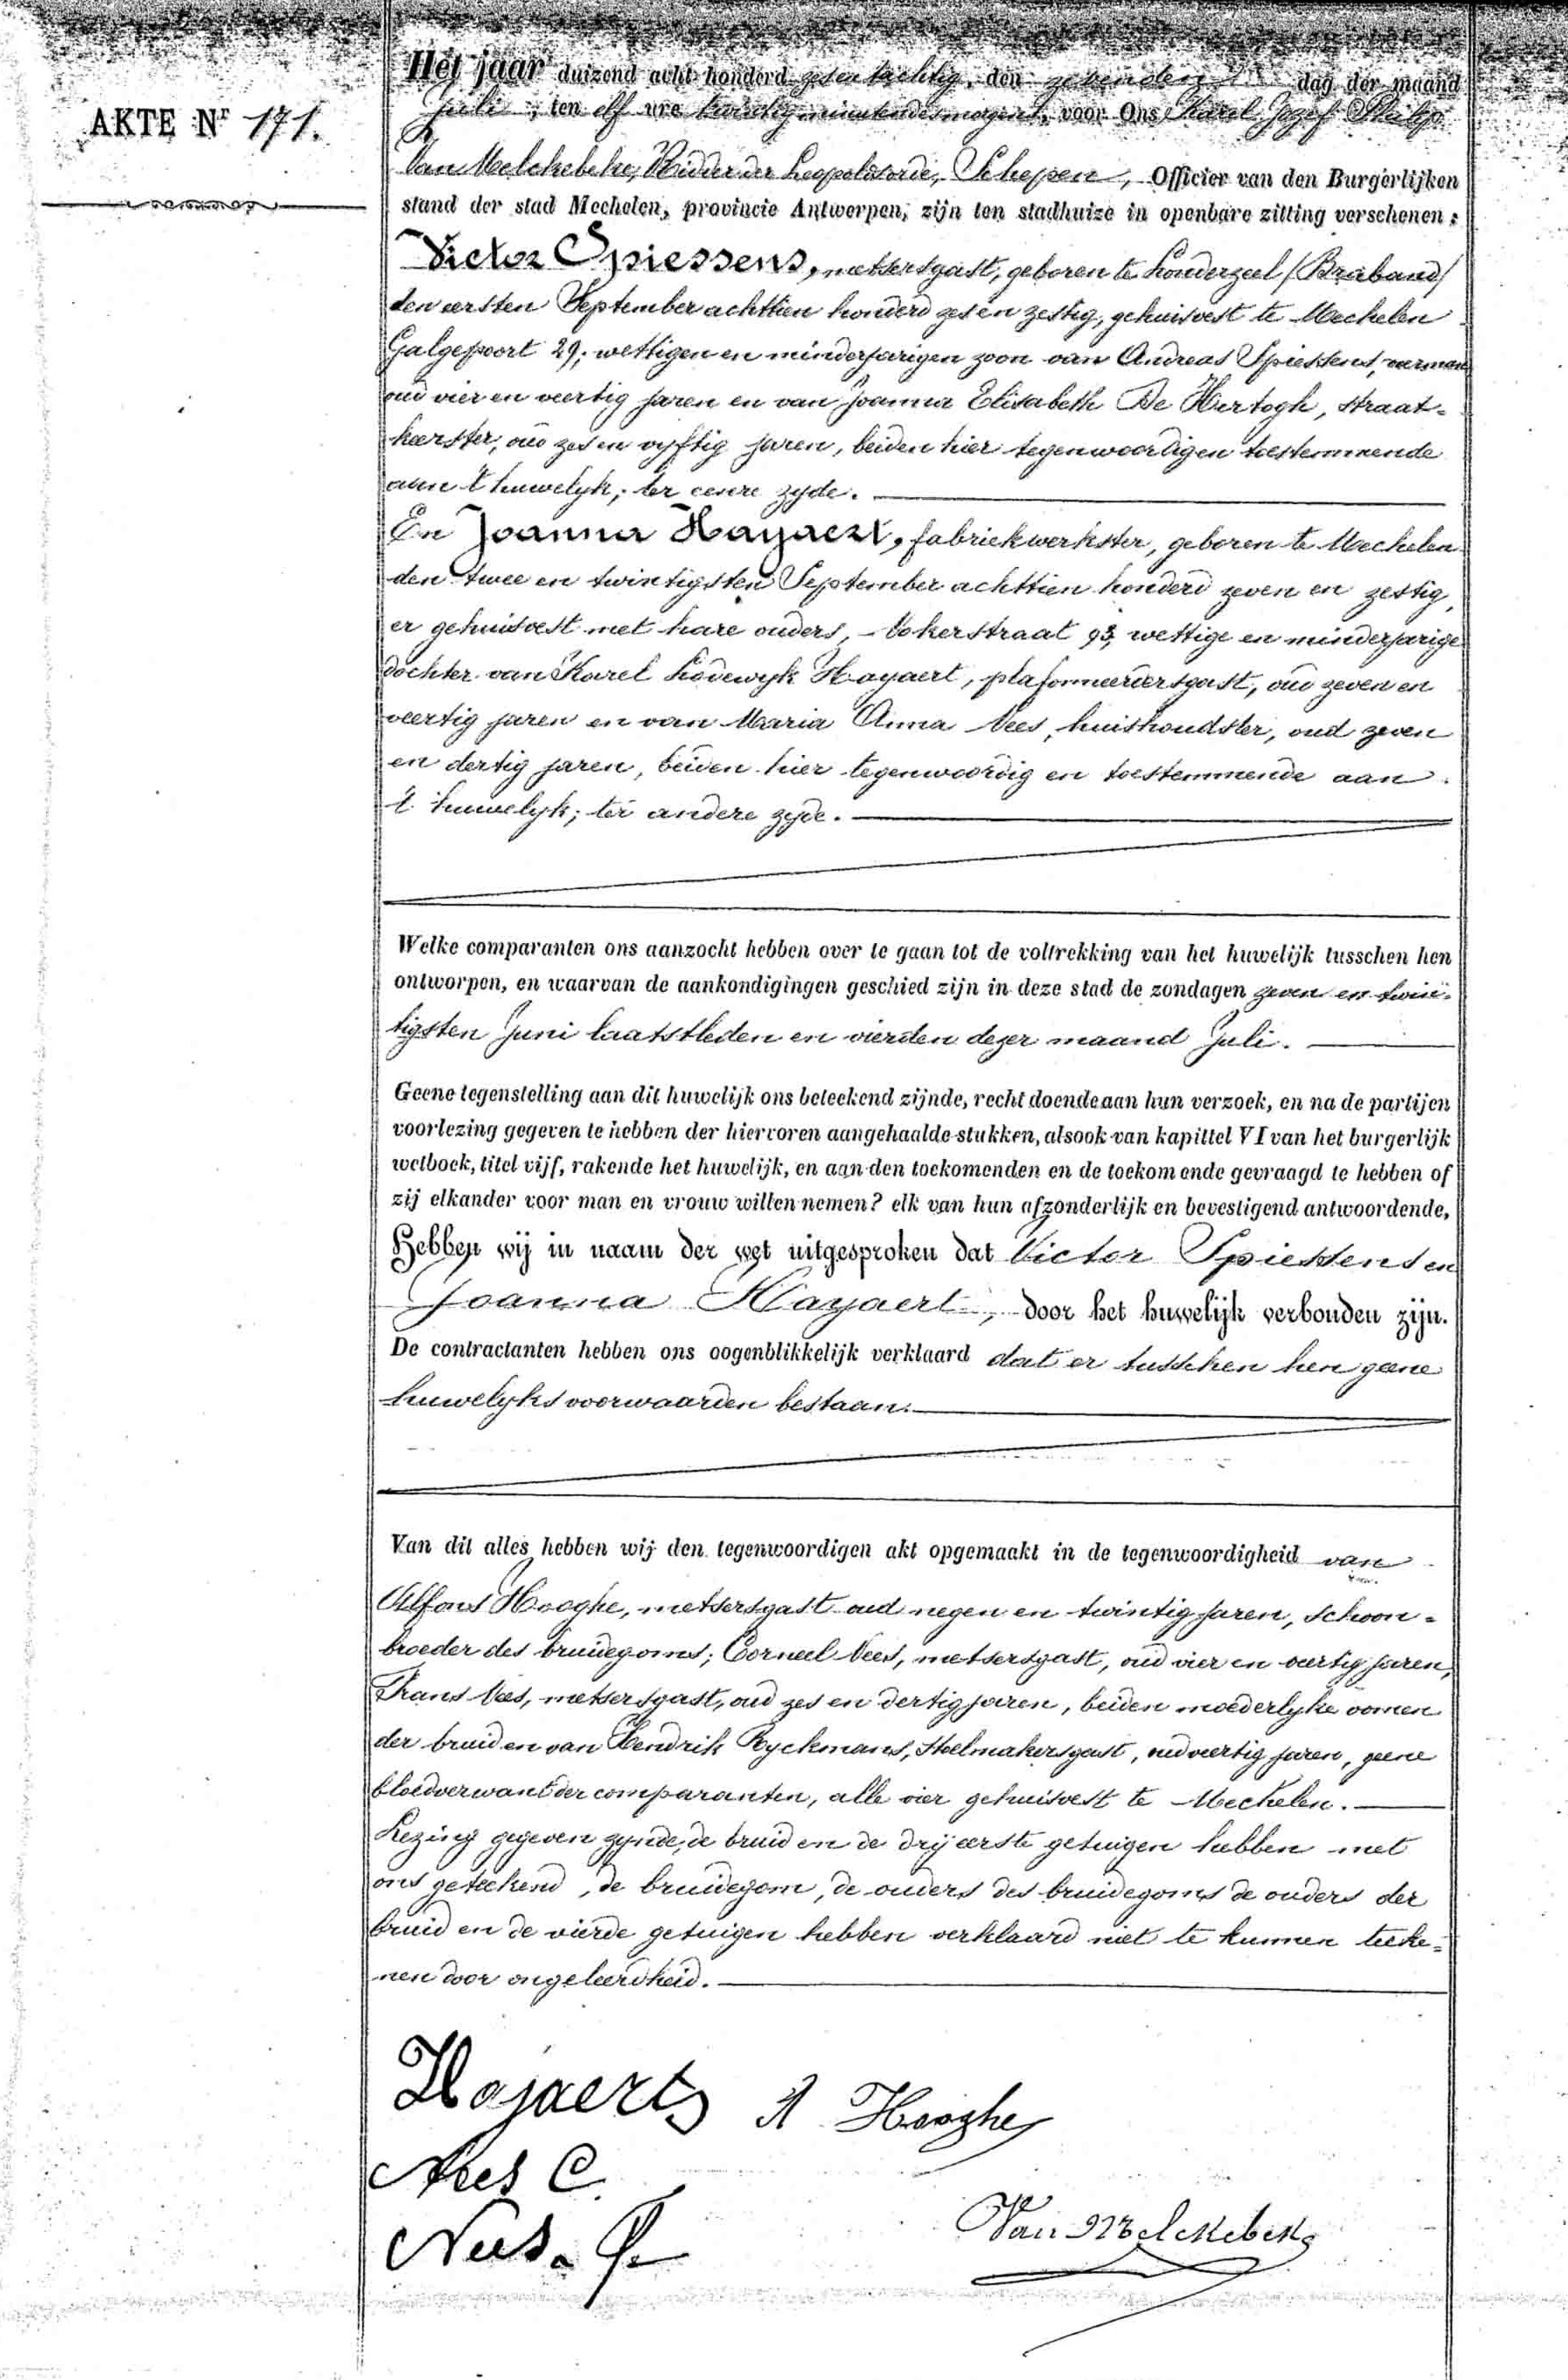 AKTE Nr 171.
Het jaar duizend acht honderd zes en tachtig, den zevenden dag der maand
Juli, ten elf ure twintig minuten des morgens, voor Ons Karel Jozef Philip
Van Melckebeke, Ridder der Leopoldsorde, Schepen, Officier van den Burgerlijken
stand der stad Mechelen, provincie Antwerpen, zijn ten stadhuize in openbare zitting verschenen:
Victor Spiessens, metsersgast, geboren te Londerzeel (Braband)
den eersten September achttien honderd zes en zestig, gehuisvest te Mechelen
Galgepoort 29; wettigen en minderjarigen zoon van Andreas Spiessens,
oud vier en veertig jaren en van Joanna Elisabeth De Hertogh, straat-
keerster, oud zes en vyftig jaren, beiden hier tegenwoordig en toestemmende
aan 't huwelyk; ter eenre zyde.
En Joanna Hayaert, fabriekwerkster, geboren te Mechelen
den twee en twintigsten September achttien honderd zeven en zestig,
er gehuisvest met hare ouders, Nokerstraat 93, wettige en minderjarige
dochter van Karel Lodewyk Hayaert, plafonneerdersgast, oud zeven en
veertig jaren en van Maria Anna Nees, huishoudster, oud zeven
en dertig jaren, beiden hier tegenwoordig en toestemmende aan
't huwelyk; ter andere zyde.
Welke comparanten ons aanzocht hebben over te gaan tot de voltrekking van het huwelijk tusschen hen
ontworpen, en waarvan de aankondigingen geschied zijn in deze stad de zondagen zeven en twin-
tigsten Juni laatstleden en vierden dezer maand Juli.
Geene tegenstelling aan dit huwelijk ons beteekend zijnde, recht doende aan hun verzoek, en na de partijen
voorlezing gegeven te hebben der hiervoren aangehaalde stukken, alsook van kapittel VI van het burgerlijk
wetboek, titel vijf, rakende het huwelijk, en aan den toekomenden en de toekomende gevraagd te hebben of
zij elkander voor man en vrouw willen nemen? elk van hun afzonderlijk en bevestigend antwoordende,
Hebben wij in naam der wet uitgesproken dat Victor Spiessens en
Joanna Hayaert, door het huwelijk verbonden zijn.
De contractanten hebben ons oogenblikkelijk verklaard dat er tusschen hen geene
huwelyksvoorwaarden bestaan.
Van dit alles hebben wij den tegenwoordigen akt opgemaakt in de tegenwoordigheid van
Alfons Hooghe, metsersgast oud negen en twintig jaren, schoon-
broeder des bruidegoms; Corneel Nees, metsersgast, oud vier en veertig jaren,
Frans Nees, metsersgast, oud zes en dertig jaren, beiden moederlyke oomen
der bruid en van Hendrik Ryckmans, stoelmakersgast, oud veertig jaren, geene
bloedverwant der comparanten, alle vier gehuisvest te Mechelen.
Lezing gegeven zynde, de bruid en de dry eerste getuigen hebben met
ons geteekend, de bruidegom, de ouders des bruidegoms de ouders der
bruid en de vierde getuigen hebben verklaard niet te kunnen teeke-
nen door ongeleerdheid.
Hajaerts A Hooghe
Nees C.
Nees. F.
Van Melckebeke